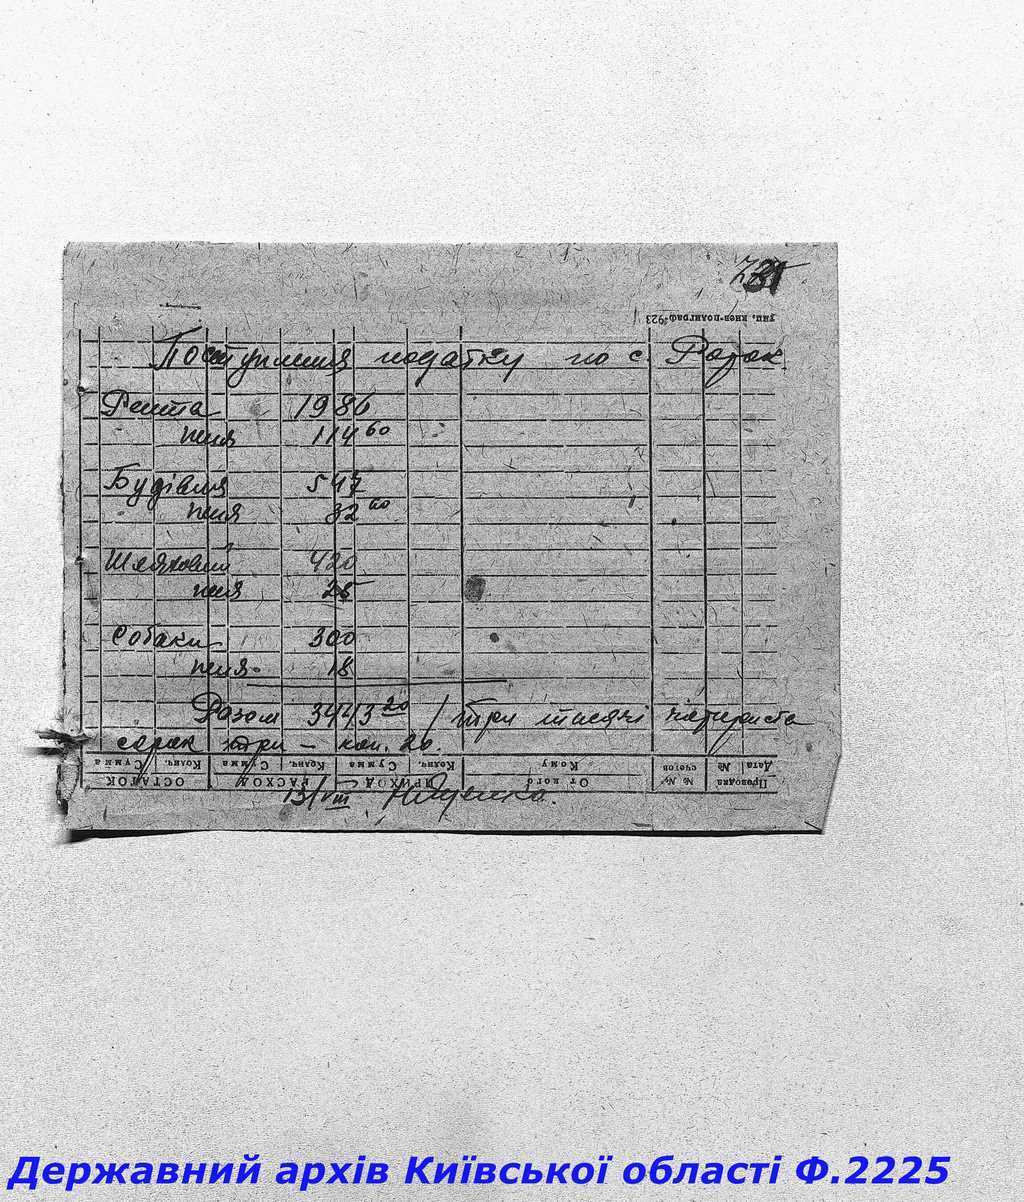 Поступлення податку по с. Розок
Рента 1986
пеня 114 60
Будівля 547
пеня 32 60
Шляховий 420
пеня 25
Собаки 300
пеня 18
Разом 3443 20 / три тисячі чотириста
сорок три – коп. 20.
Дата № Проводка
№ № счетов
От кого Кому
ПРИХОД Колич. Сумма
РАСХОД Колич. Сумма
ОСТАТОК Колич. Сумма
13/VIII
Державний архів Київської області Ф.2225